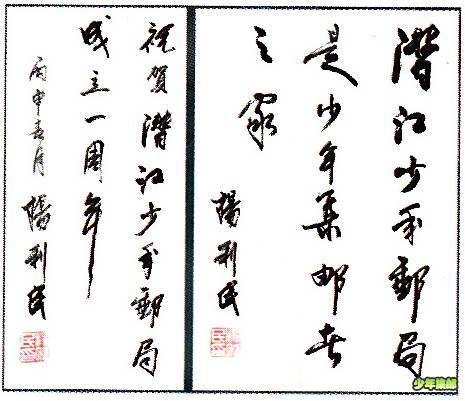 潛江少年郵局
是少年集邮者
之家
楊利民
祝賀潛江少年郵局
成立一周年
丙申春月 楊利民
少年集邮